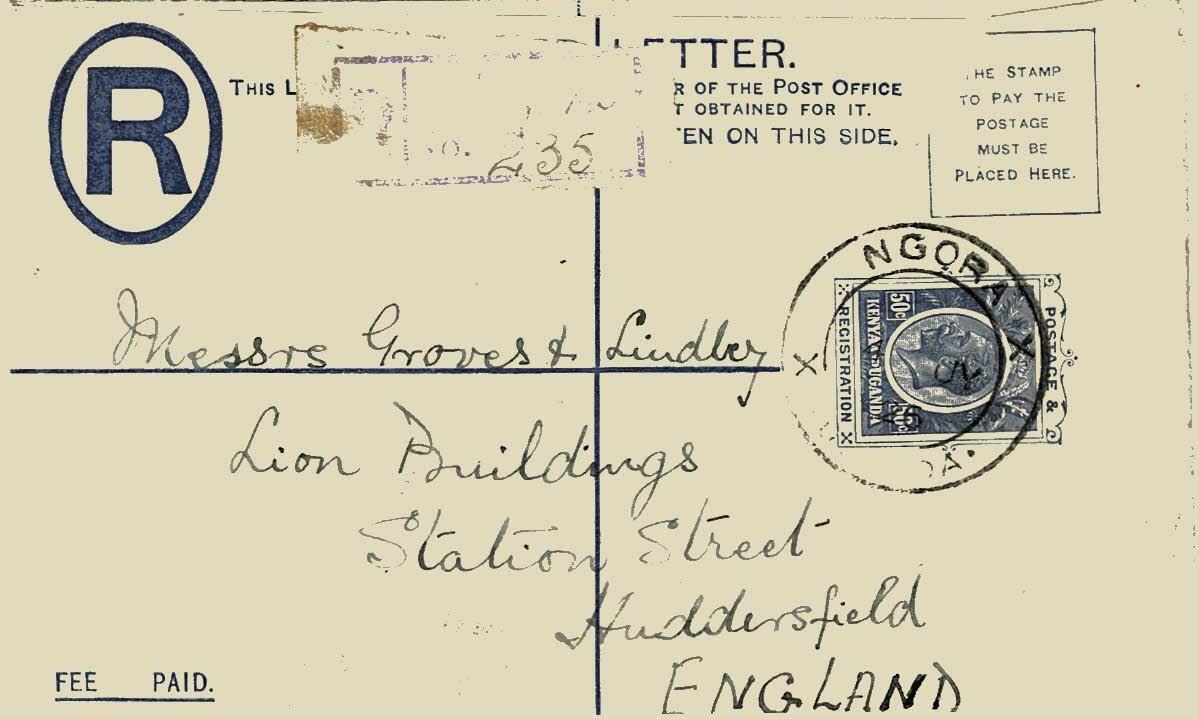 R
LETTER.
THIS L
R OF THE POST OFFICE
T OBTAINED FOR IT.
EN ON THIS SIDE.
No. 235
HE STAMP
TO PAY THE
POSTAGE
MUST BE
PLACED HERE.
NGORA
X X
JY
26
DA.
POSTAGE &
REGISTRATION
KENYA & UGANDA
50c 50c
Messrs Groves & Lindley
Lion Buildings
Station Street
Huddersfield
ENGLAND
FEE PAID.